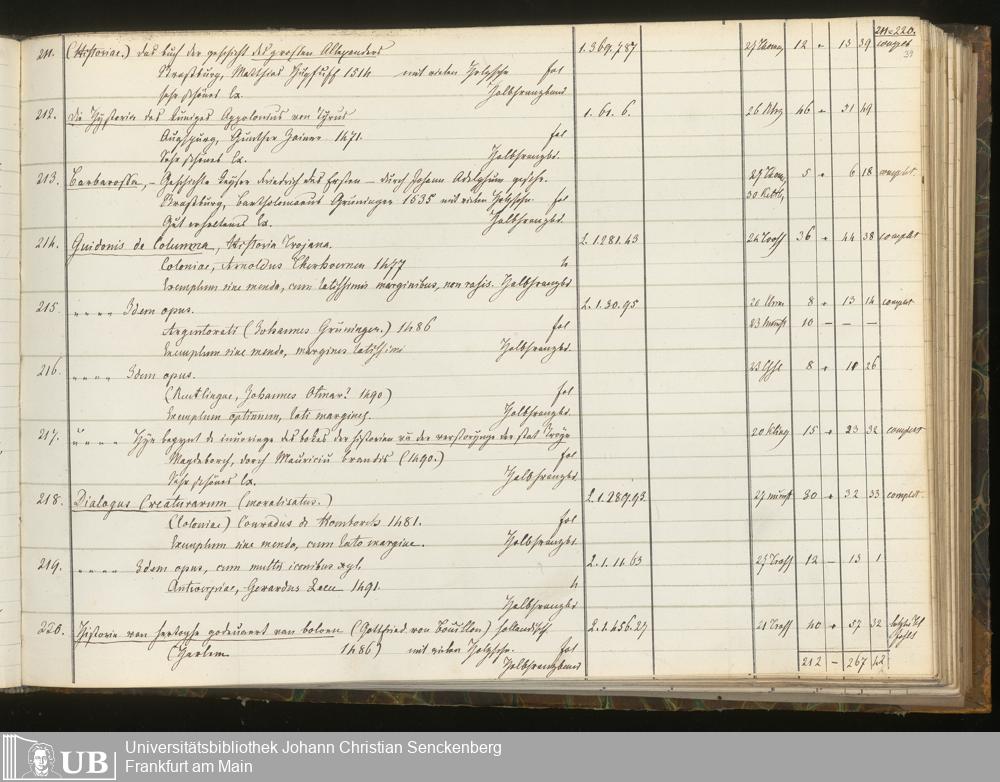 211-220.
211. (Historiae.) das buch der geschicht des grossen Allexanders 1.369.787 12 13 39 complet
Strassburg, Matthias Hüpfuff 1514 mit vielen Holzschn. fol
Sehr schönes Ex. Halbfranzband.
212. Die Hystoria des küniges Appolonius von Tyrus 1. 61. 6. 26 46 31 49
Augspurg, Gunther Zainer 1471. fol
Sehr schönes Ex. Halbfranzbd.
213. Barbarossa, – Geschichte Keyser Friedrich des Ersten – durch Johann Adelphum 29 5 6 18 complet.
Strassburg, Bartholomaeus Grüninger 1535 mit vielen Holzschn. fol 30
Gut erhaltenes Ex. Halbfranzbd.
214. Guidonis de Columna, Historia Trojana. 2.1281.43 24 Tross 36 44 38 complet
Coloniae, Arnoldus Therhoernen 1477 4
Exemplum sine menda, cum latissimis marginibus, non rasis. Halbfranzbd
215. " " " " Idem opus. 2.1.30.95 20 8 13 14 complet
Argentorati (Johannes Grüninger.) 1486 fol 23 10 – – –
Exemplum sine menda, margines latissimi Halbfranzbd.
216. " " " " Idem opus. 23 8 10 26
(Reutlingae, Johannes Otmar? 1490) fol
Exemplum optimum, lati margines. Halbfranzbd.
217. " " " " Hye begynt de inneringe des bokes der historien vā der verstoringe der stat Troye 20 15 23 32 complet
Magdeborch, dorch Mauriciū brandis (1490.) fol
Sehr schönes Ex. Halbfranzbd.
218. Dialogus Creaturarum (moralisatus.) 2.1.289.93 27 30 32 33 complet
(Coloniae) Conradus de Homborch 1481. fol
Exemplum sine menda, cum lato margine. Halbfranzbd.
219. " " " " Idem opus, cum multis iconibus xyl. 2.1.11.63 25 Tross 12 – 13 1
Antwerpiae, Gerardus Leeu 1491. 4
Halbfranzbd
220. Historie van hertoghe godevaert van boloen (Gottfried von Bouillon) holländisch. 2.1.456.27 21 Tross 40 57 32
(Harlem 1486) mit vielen Holzschn. fol
Halbfranzband
212 – 267 42
UB
Universitätsbibliothek Johann Christian Senckenberg
Frankfurt am Main